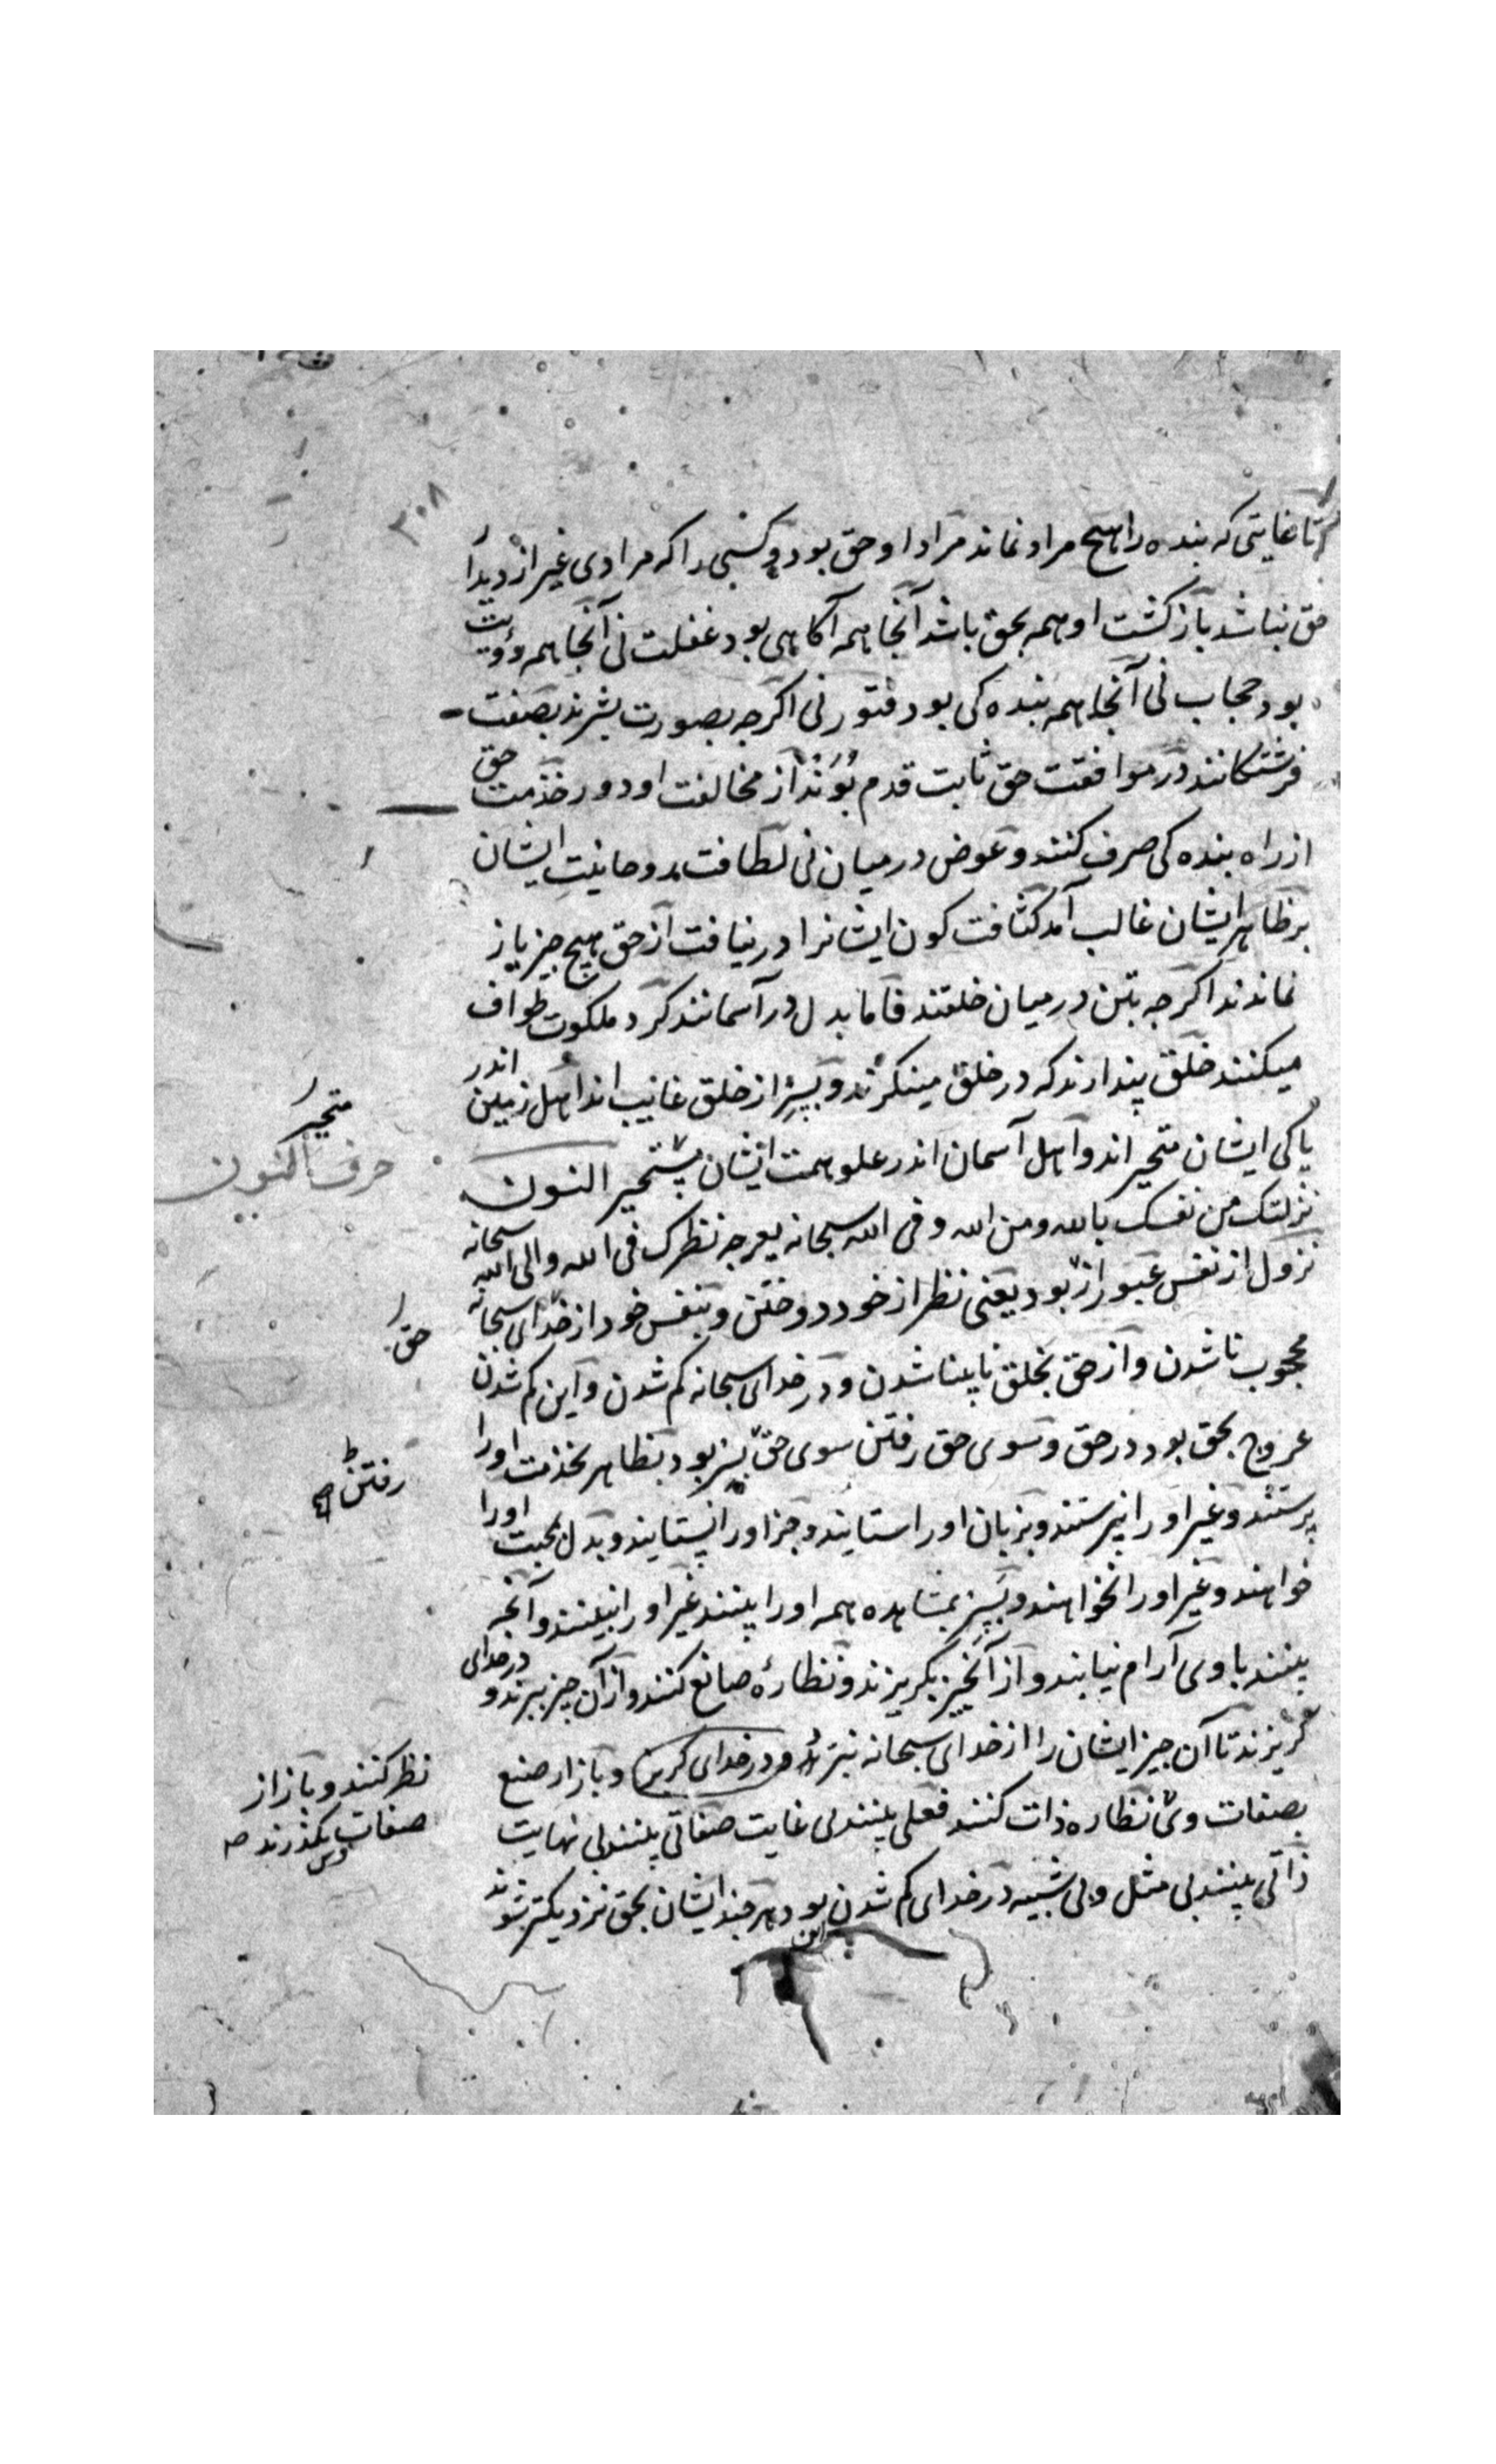 ۳۰۸
تا غایتی که بنده را هیچ مراد نماند مراد او حق بود و کسی را که مرادی غیر از دیدار
حق نباشد بازگشت او همه بحق باشد آنجا همه آگاهی بود غفلت نی آنجا همه رؤیت
بود حجاب نی آنجا همه بنده کی بود فتور نی اگرچه بصورت بشرند بصفت
فرشتگانند در موافقت حق ثابت قدم بوند از مخالفت او دور خدمت حق
از راه بنده کی صرف کنند و عوض در میان نی لطافت روحانیت ایشان
بر ظاهر ایشان غالب آمد کثافت کون ایشانرا در نیافت از حق هیچ چیز باز
نماندند اگرچه بتن در میان خلقند فاما بدل در آسمانند گرد ملکوت طواف
میکنند خلق پندارند که در خلق مینگرند و بسر از خلق غایب اند اهل زمین اندر
پاکی ایشان متحیر اند و اهل آسمان اندر علو همت ایشان متحیر النون
متحیر
حرف النون
نزلتک من نفسک بالله ومن الله وفی الله سبحانه یعرجه نظرک فی الله والی الله سبحانه
نزول از نفس عبور از بود یعنی نظر از خود دوختن و بنفس خود از خدای سبحانه
حق
محجوب ناشدن و از حق بخلق ناپینا شدن و در خدای سبحانه گم شدن و این گم شدن
عروج بحق بود در حق و سوی حق رفتن سوی حق بسر بود بظاهر بخدمت او را
رفتن
پرستند و غیر او را نپرستند و بزبان او را ستایند و جز او را نستایند و بدل محبت او را
خواهند و غیر او را نخواهند و بسر بمشاهده همه او را بینند غیر او را نبینند و آنچه
بینند با وی آرام نیابند و از آنچیز بگریزند و نظارهٔ صانع کنند و از آن چیز ببرند و در خدای
گریزند تا آن چیز ایشان را از خدای سبحانه نبرد و در خدای گریز و باز از صنع
نظر کنند و باز از
صفات وی بگذرند صح
بصفات وی نظاره ذات کنند فعلی بینند بی غایت صفاتی بینند بی نهایت
ذاتی بینند بی مثل و بی شبیه در خدای گم شدن این بود هر چند ایشان بحق نزدیکتر شوند